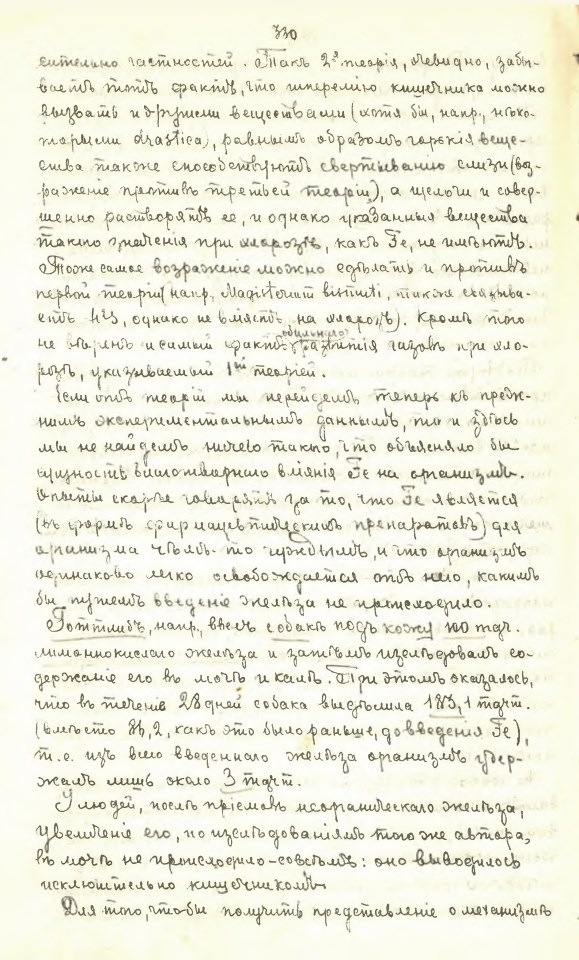 330
сительно частностей. Такъ 2я теорія, очевидно, забы-
ваетъ тотъ фактъ, что гиперемію кишечника можно
вызвать и другими веществами (хотя бы, напр., нѣко-
торыми drastica), равнымъ образомъ горькія веще-
ства также способствуютъ свертыванію слизи (воз-
раженіе противъ третьей теоріи), а щелочи и совер-
шенно растворятъ ее, и однако указанныя вещества
такого значенія при хлорозѣ, какъ Fe, не имѣютъ.
Тоже самое возраженіе можно сдѣлать и противъ
первой теоріи (напр. Magisterium bismuti, также связыва-
етъ H2S, однако не вліяетъ на хлорозъ). Кромѣ того
не вѣренъ и самый фактъ обильнаго развитія газовъ при хло-
розѣ, указываемый 1ой теоріей.
Если отъ теорій мы перейдемъ теперь къ преж-
нимъ экспериментальнымъ даннымъ, то и здѣсь
мы не найдемъ ничего такого, что объясняло бы
сущность благотворнаго вліянія Fe на организмъ.
Опыты скорѣе говорятъ за то, что Fe является
(въ формѣ фармацевтическихъ препаратовъ) для
организма чѣмъ-то чуждымъ, и что организмъ
одинаково легко освобождается отъ него, какимъ
бы путемъ введеніе желѣза не происходило.
Готтлибъ, напр., ввелъ собакѣ подъ кожу 100 mgr.
лимоннокислаго желѣза и затѣмъ изслѣдовалъ со-
держаніе его въ мочѣ и калѣ. При этомъ оказалось,
что въ теченіе 28 дней собака выдѣлила 183,1 mgr.
(вмѣсто 86,2, какъ это было раньше, до введенія Fe),
т.е. изъ всего введеннаго желѣза организмъ удер-
жалъ лишь около 3 mgr.
У людей, послѣ пріемовъ неорганическаго желѣза,
увеличеніе его, по изслѣдованіямъ того же автора,
въ мочѣ не происходило совсѣмъ: оно выводилось
исключительно кишечникомъ.
Для того, чтобы получить представленіе о механизмѣ